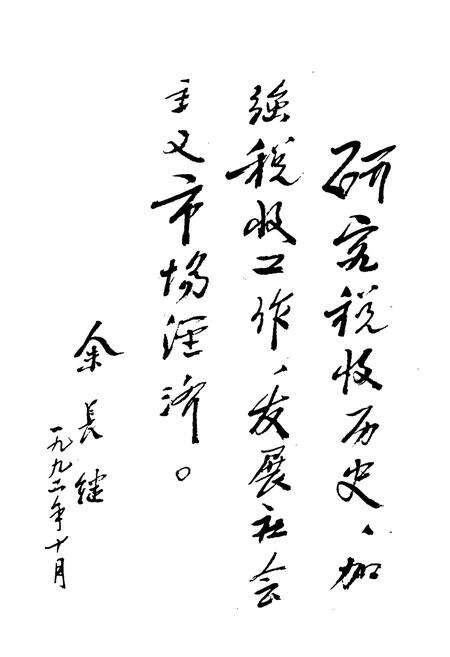 研究税收历史、加
强税收工作、发展社会
主义市场经济。
金长继
一九九二年十月